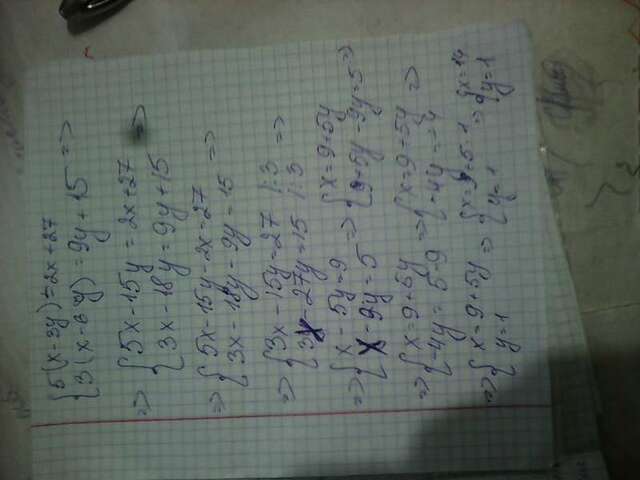 {5(x-3y)=2x+27
{3(x-6y)=9y+15 =>
=> {5x-15y=2x+27 =>
{3x-18y=9y+15
=> {5x-15y-2x=27 =>
{3x-18y-9y=15
=> {3x-15y=27 |:3 =>
{3x-27y=15 |:3
=> {x-5y=9 => {x=9+5y
{x-9y=5 {9+5y-9y=5 =>
=> {x=9+5y => {x=9+5y =>
{-4y=5-9 {-4y=-4
=> {x=9+5y => {x=9+5·1 => {x=14
{y=1 {y=1 {y=1